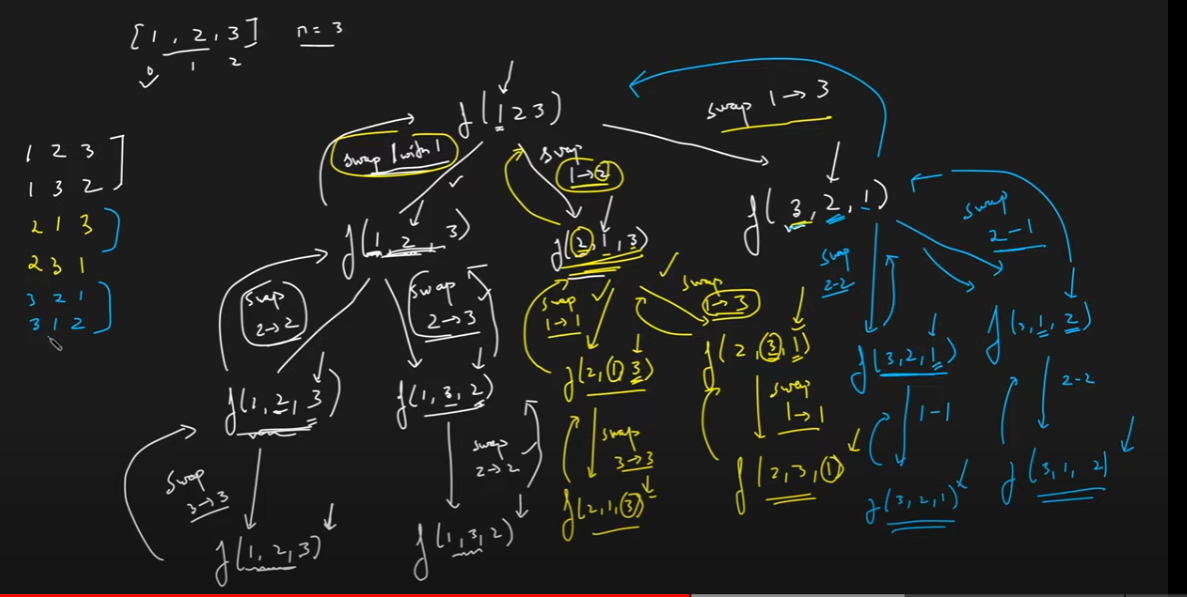 [1, 2, 3] n = 3
0 1 2
f(1 2 3)
swap 1 → 3
swap 1 with 1
swap
1 → 2
1 2 3
1 3 2
2 1 3
2 3 1
3 2 1
3 1 2
f(1, 2, 3)
f(2, 1, 3)
f(3, 2, 1)
swap
2 → 2
swap
2 → 3
swap
1 → 1
swap
1 → 3
swap
2-2
swap
2-1
f(1, 2, 3)
f(1, 3, 2)
f(2, 1 3)
f(2, 3, 1)
f(3, 2, 1)
f(3, 1, 2)
swap
3 → 3
swap
2 → 2
swap
3 → 3
swap
1 → 1
1-1
2-2
f(1, 2, 3)
f(1, 3, 2)
f(2, 1, 3)
f(2, 3, 1)
f(3, 2, 1)
f(3, 1, 2)